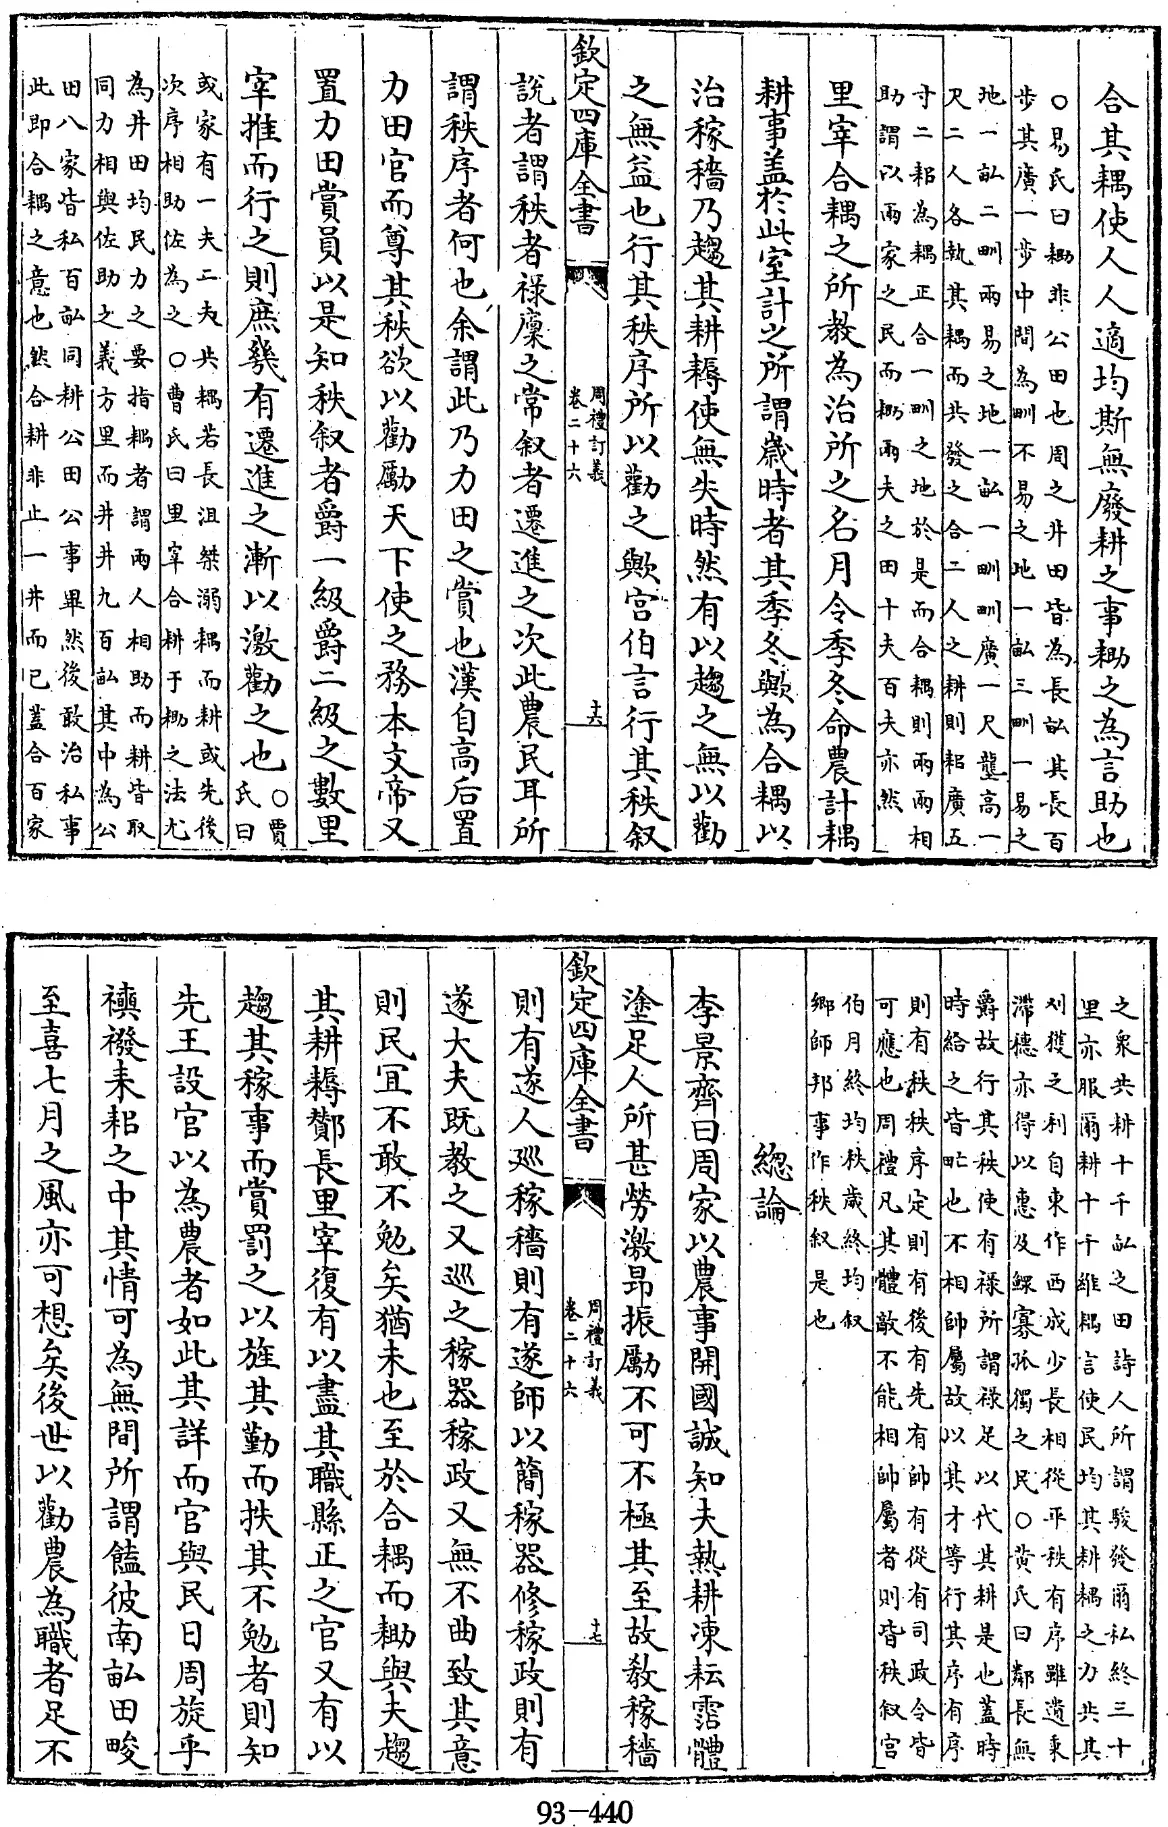 合其耦使人人適均斯無廢耕之事耡之為言助也
〇易氏曰耡非公田也周之井田皆為長畝其長百
步其廣一步中間為甽不易之地一畝三甽一易之
地一畝二甽兩易之地一畝一甽甽廣一尺壟高一
尺二人各執其耦而共發之合二人之耕則耜廣五
寸二耜為耦正合一甽之地於是而合耦則兩兩相
助謂以兩家之民而耡兩夫之田十夫百夫亦然
里宰合耦之所教為治所之名月令季冬命農計耦
耕事盖於此室計之所謂歲時者其季冬歟為合耦以
治稼穡乃趨其耕耨使無失時然有以趨之無以勸
之無益也行其秩序所以勸之歟宮伯言行其秩叙
欽定四庫全書
周禮訂義
卷二十六
十六
說者謂秩者祿廩之常叙者遷進之次此農民耳所
謂秩序者何也余謂此乃力田之賞也漢自高后置
力田官而尊其秩欲以勸勵天下使之務本文帝又
置力田賞員以是知秩叙者爵一級爵二級之數里
宰推而行之則庶幾有遷進之漸以激勸之也〇賈
氏曰
或家有一夫二夫共耦若長沮桀溺耦而耕或先後
次序相助佐為之〇曹氏曰里宰合耕于耡之法尤
為井田均民力之要指耦者謂兩人相助而耕皆取
同力相與佐助之義方里而井井九百畝其中為公
田八家皆私百畝同耕公田公事畢然後敢治私事
此即合耦之意也然合耕非止一井而已蓋合百家
之衆共耕十千畝之田詩人所謂駿發爾私終三十
里亦服爾耕十千維耦言使民均其耕耦之力共其
刈獲之利自東作西成少長相從平秩有序雖遺秉
滯穗亦得以惠及鰥寡孤獨之民〇黃氏曰鄰長無
爵故行其秩使有祿所謂祿足以代其耕是也蓋時
時給之皆眡也不相帥屬故以其才等行其序有序
則有秩秩序定則有後有先有帥有從有司政令皆
可應也周禮凡其體敵不能相帥屬者則皆秩叙宮
伯月終均秩歲終均叙
鄉師邦事作秩叙是也
總論
李景齊曰周家以農事開國誠知夫熱耕凍耘霑體
塗足人所甚勞激昂振勵不可不極其至故教稼穡
則有遂人巡稼穡則有遂師以簡稼器修稼政則有
欽定四庫全書
周禮訂義
卷二十六
十七
遂大夫既教之又巡之稼器稼政又無不曲致其意
則民宜不敢不勉矣猶未也至於合耦而耡與夫趨
其耕耨酇長里宰復有以盡其職縣正之官又有以
趨其稼事而賞罰之以旌其勤而扶其不勉者則知
先王設官以為農者如此其詳而官與民日周旋乎
襏襫耒耜之中其情可為無間所謂饁彼南畝田畯
至喜七月之風亦可想矣後世以勸農為職者足不
93-440